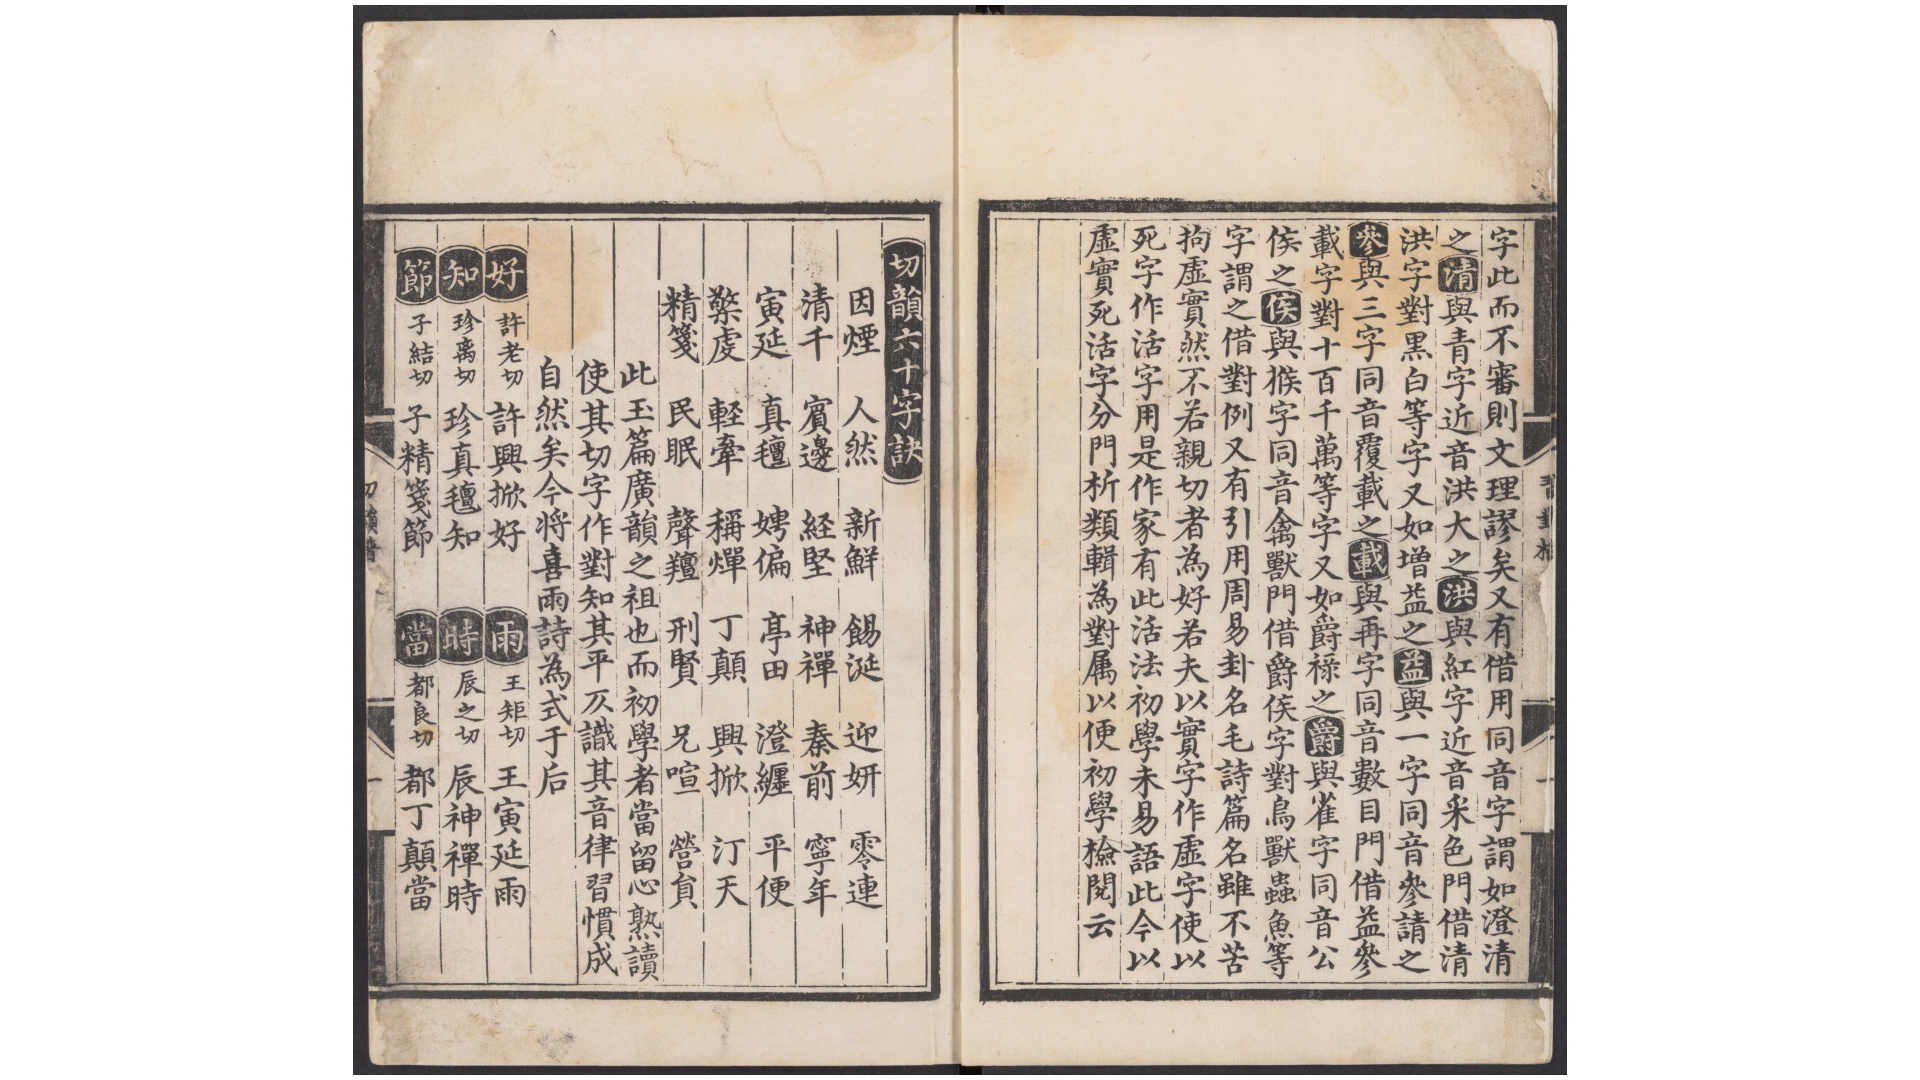 字此而不審則文理謬矣又有借用同音字謂如澄清
之清與青字近音洪大之洪與紅字近音釆色門借清
洪字對黑白等字又如增益之益與一字同音參請之
參與三字同音覆載之載與再字同音數目門借益參
載字對十百千萬等字又如爵禄之爵與雀字同音公
侯之侯與猴字同音禽獸門借爵侯字對鳥獸蟲魚等
字謂之借對例又有引用周易卦名毛詩篇名雖不苦
拘虛實然不若親切者為好若夫以實字作虛字使以
死字作活字用是作家有此活法初學未易語此今以
虛實死活字分門析類輯為對属以便初學檢閱云
切韻六十字訣
因煙 人然 新鮮 餳涎 迎妍 零連
清千 賓邊 経堅 神禪 秦前 寧年
寅延 真氊 娉偏 亭田 澄纏 平便
檠虔 輕牽 稱燀 丁顛 興掀 汀天
精箋 民眠 聲羶 刑賢 兄喧 營負
此玉篇廣韻之祖也而初學者當留心熟讀
使其切字作對知其平仄識其音律習慣成
自然矣今将喜雨詩為式于后
好 許老切 許興掀好 雨 王矩切 王寅延雨
知 珍离切 珍真氊知 時 辰之切 辰神禪時
節 子結切 子精箋節 當 都良切 都丁顛當
一